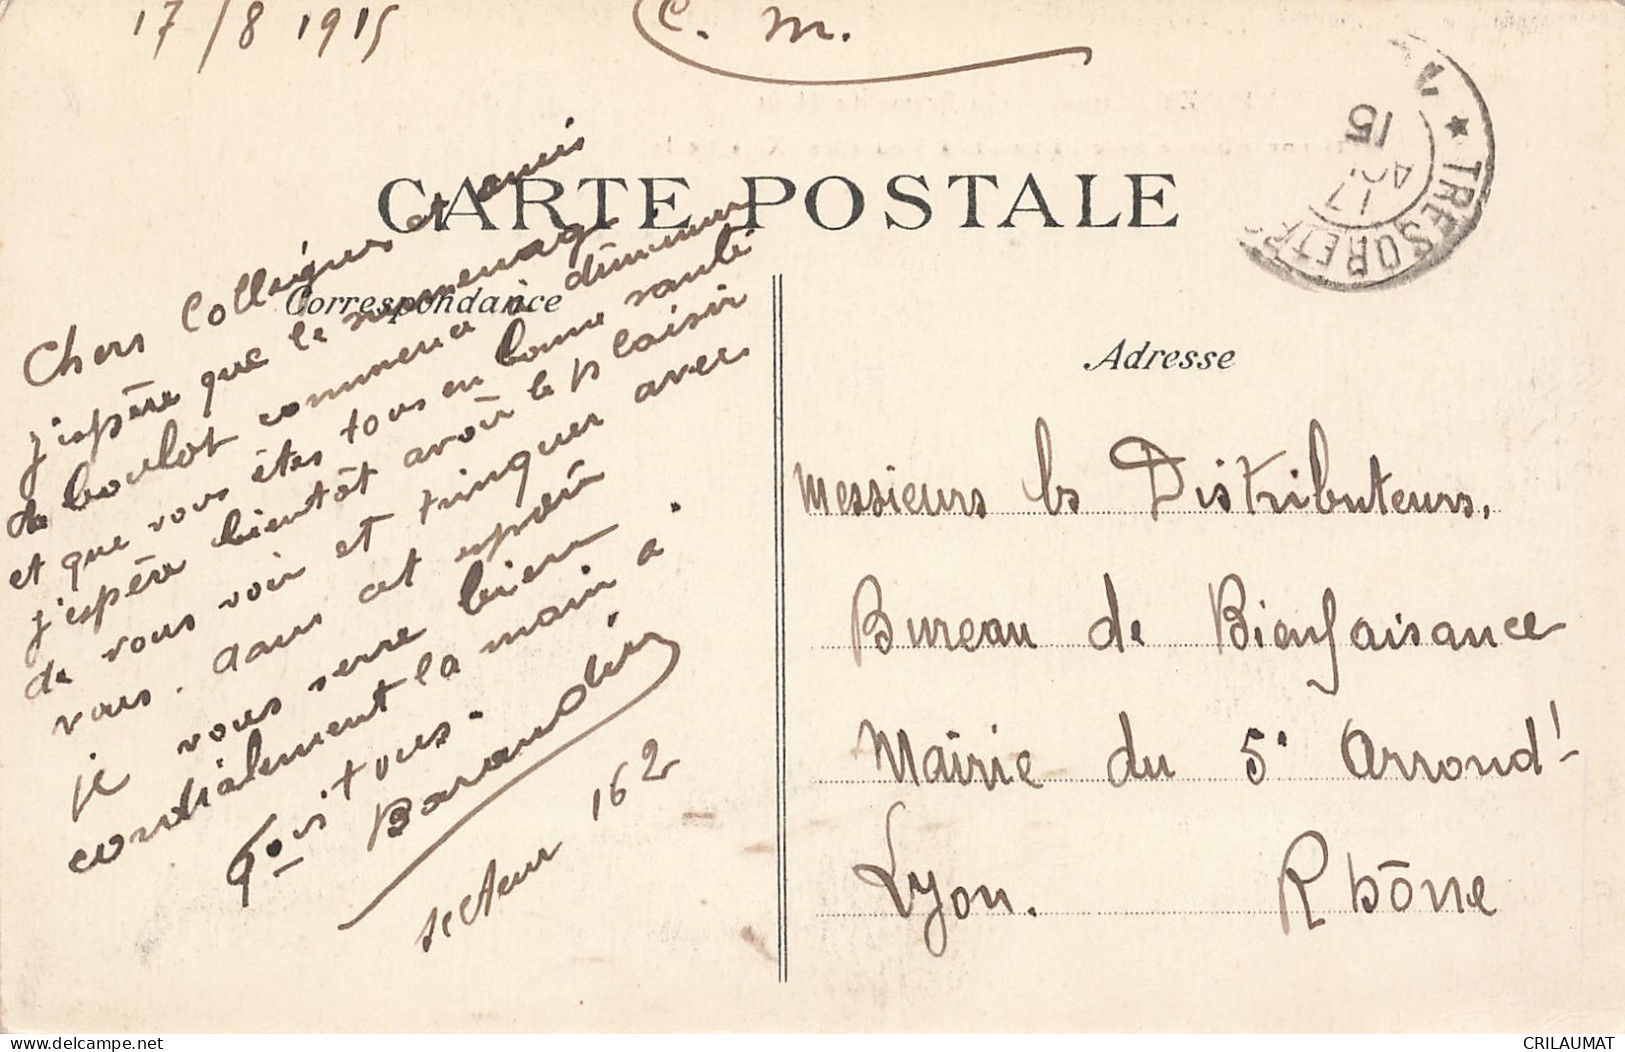 17/8 1915
C. M.
CARTE POSTALE
Correspondance
Chers Collègues et amis
j'espère que le
de boulot commence à diminuer
et que vous êtes tous en bonne santé
j'espère bientôt avoir le plaisir
de vous voir et trinquer avec
vous. dans cet espoir
je vous serre bien
cordialement la main à
tous.
secteur 162
TRESOR ET
17
15
Adresse
Messieurs les Distributeurs,
Bureau de Bienfaisance
Mairie du 5e Arrondt
Lyon. Rhône
delcampe.net
CRILAUMAT